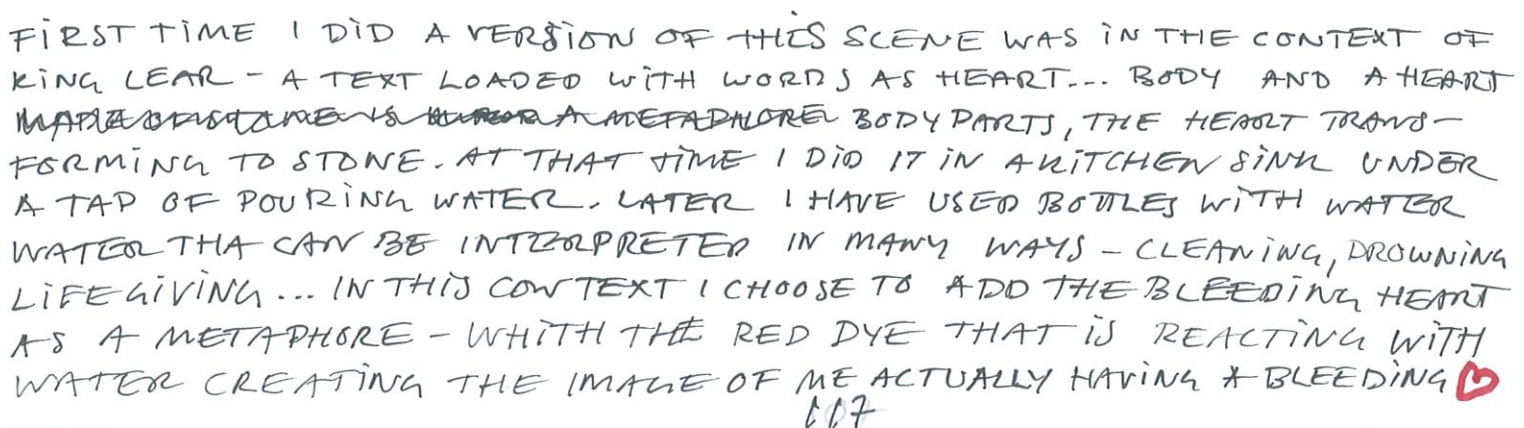 FIRST TIME I DID A VERSION OF THIS SCENE WAS IN THE CONTEXT OF
KING LEAR – A TEXT LOADED WITH WORDS AS HEART... BODY AND A HEART
BODYPARTS, THE HEART TRANS–
FORMING TO STONE. AT THAT TIME I DID IT IN A KITCHEN SINK UNDER
A TAP OF POURING WATER. LATER I HAVE USED BOTTLES WITH WATER
WATER THA CAN BE INTERPRETED IN MANY WAYS – CLEANING, DROWNING
LIFEGIVING... IN THIS CONTEXT I CHOOSE TO ADD THE BLEEDING HEART
AS A METAPHORE – WHITH THE RED DYE THAT IS REACTING WITH
WATER CREATING THE IMAGE OF ME ACTUALLY HAVING A BLEEDING
117